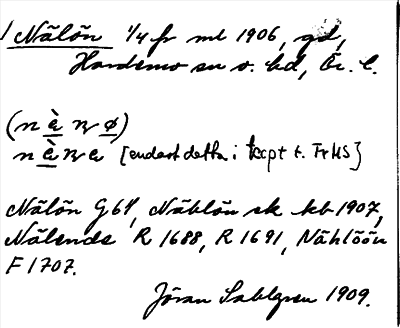 Nälön 1/4 fr ml 1906, gd,
Hardemo sn o. hd, Ör. l.
(n ä̀ n ø)
n ä̀ n e [endast detta i kcpt t. FrHS]
Nälön G 64, Näblön sk kb 1907,
Nälends R 1688, R 1691, Nählöön
F 1707.
Jöran Sahlgren 1909.